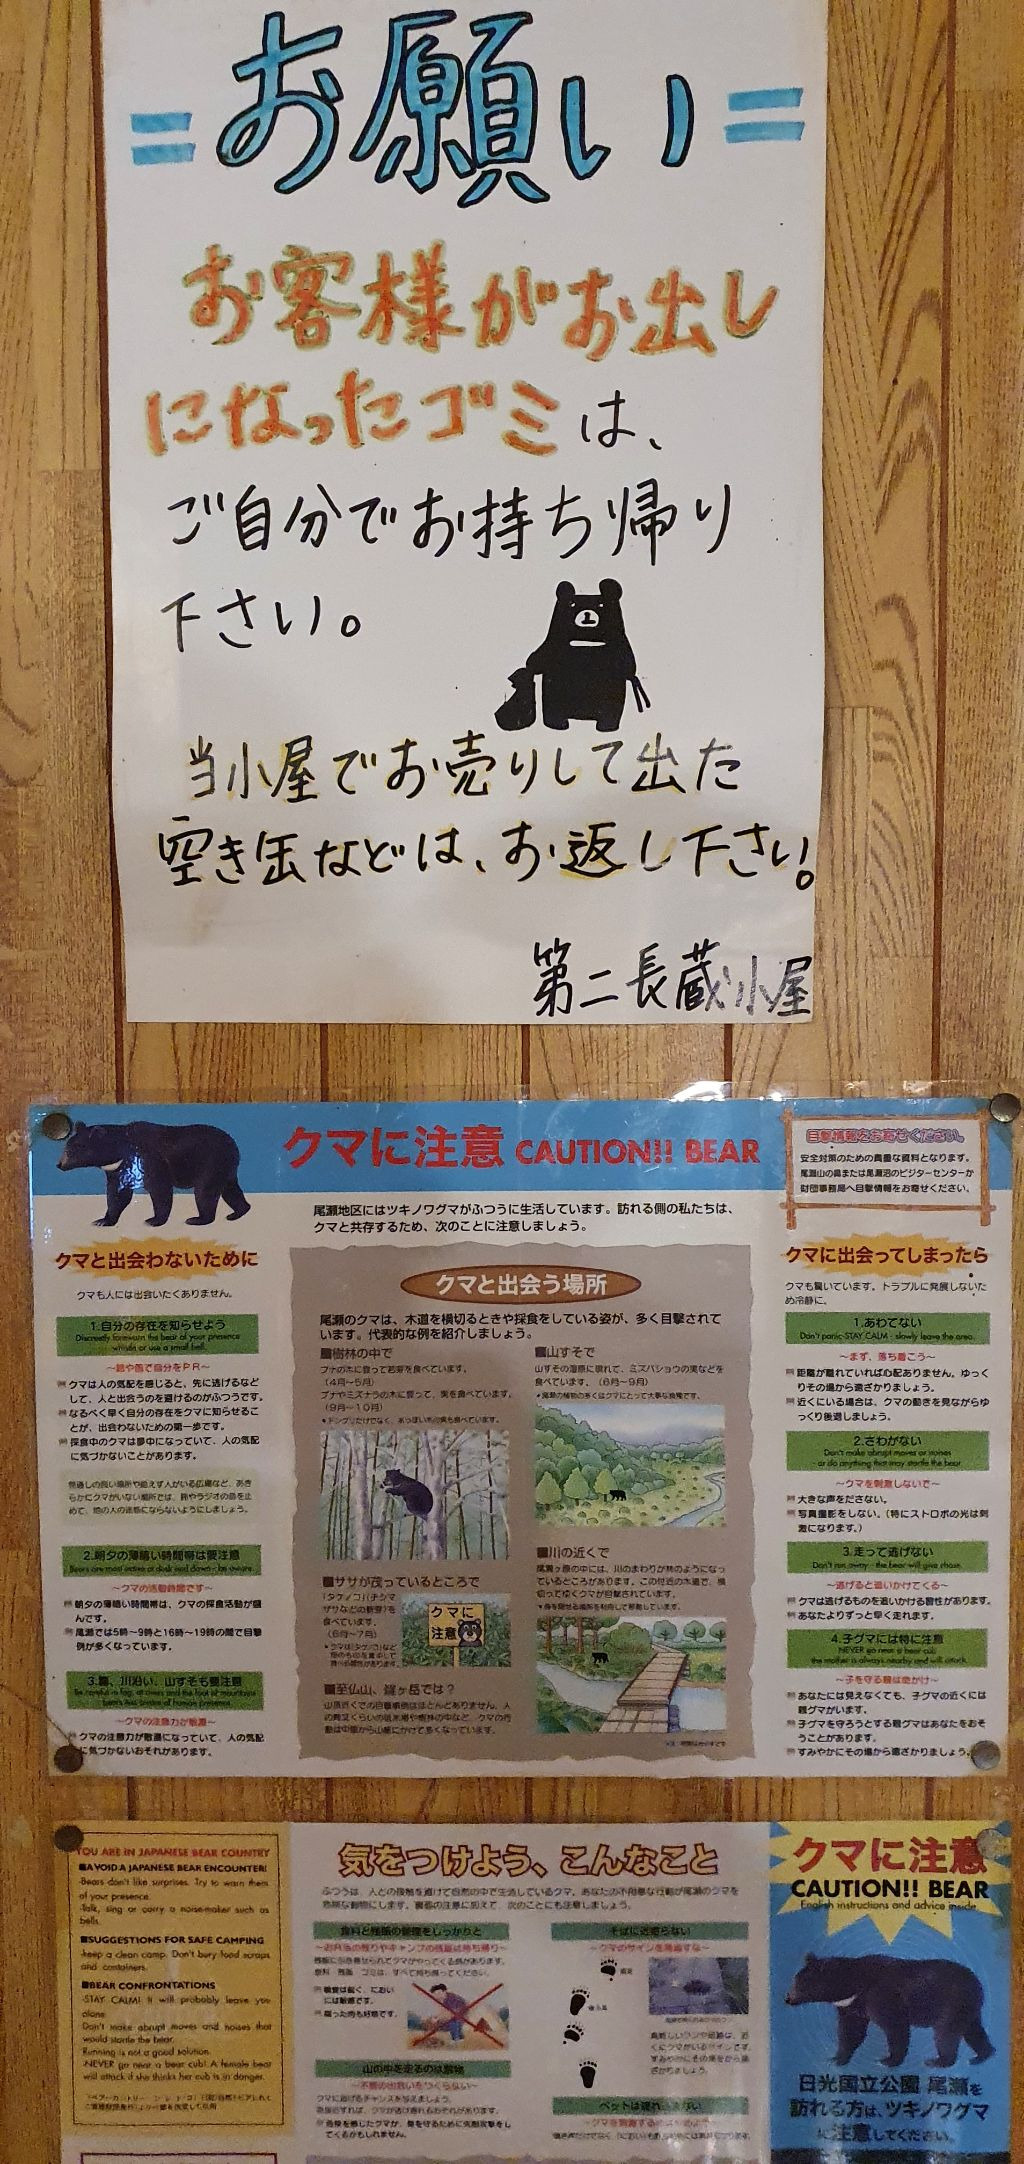 =お願い=
お客様がお出し
になったゴミは、
ご自分でお持ち帰り
下さい。
当小屋でお売りして出た
空き缶などは、お返し下さい。
第二長蔵小屋
クマに注意 CAUTION!! BEAR
目撃情報をお寄せください。
安全対策のための貴重な資料となります。
尾瀬山の鼻または尾瀬沼のビジターセンターか
財団事務局へ目撃情報をお寄せください。
尾瀬地区にはツキノワグマがふつうに生活しています。訪れる側の私たちは、
クマと共存するため、次のことに注意しましょう。
クマと出会わないために
クマも人には出会いたくありません。
1.自分の存在を知らせよう
Discreetly forewarn the bear of your presence
whistle or use a small bell.
～鈴や笛で自分をPR～
クマは人の気配を感じると、先に逃げるなど
して、人と出会うのを避けるのがふつうです。
なるべく早く自分の存在をクマに知らせるこ
とが、出会わないための第一歩です。
採食中のクマは夢中になっていて、人の気配
に気づかないことがあります。
見通しの良い場所や絶えず人がいる広場など、あき
らかにクマがいない場所では、鈴やラジオの音を止
めて、他の人の迷惑にならないようにしましょう。
2.朝夕の薄暗い時間帯は要注意
Bears are most active at dusk and dawn - be aware.
～クマの活動時間です～
朝夕の薄暗い時間帯は、クマの採食活動が盛
んです。
尾瀬では5時～9時と16時～19時の間で目撃
例が多くなっています。
3.霧、川沿い、山すそも要注意
～クマの注意力が散漫～
クマの注意力が散漫になっていて、人の気配
に気づかないおそれがあります。
クマと出会う場所
尾瀬のクマは、木道を横切るときや採食をしている姿が、多く目撃されて
います。代表的な例を紹介しましょう。
■樹林の中で
ブナの木に登って若芽を食べています。
(4月～5月)
ブナやミズナラの木に登って、実を食べています。
(9月～10月)
■山すそで
山すその湿原に現れて、ミズバショウの実などを
食べています。(6月～9月)
■ササが茂っているところで
「タケノコ」(チシマ
ザサなどの新芽)を
食べています。
(6月～7月)
クマに
注意
■川の近くで
尾瀬ヶ原の中には、川のまわりが林のようになっ
ているところがあります。この付近の木道で、横
切ってゆくクマが目撃されています。
■至仏山、燧ヶ岳では?
山頂近くでの目撃事例はほとんどありません。人
の背丈くらいの低木帯や樹林の中など、クマの行
動は中腹から山麓にかけて多くなっています。
クマに出会ってしまったら
クマも驚いています。トラブルに発展しないた
め冷静に。
1.あわてない
Don't panic-STAY CALM - slowly leave the area.
～まず、落ち着こう～
距離が離れていれば心配ありません。ゆっく
りその場から遠ざかりましょう。
近くにいる場合は、クマの動きを見ながらゆ
っくり後退しましょう。
2.さわがない
Don't make abrupt moves or noises
- or do anything that may startle the bear.
～クマを刺激しないで～
大きな声をださない。
写真撮影をしない。(特にストロボの光は刺
激になります。)
3.走って逃げない
Don't run away - the bear will give chase.
～逃げると追いかけてくる～
クマは逃げるものを追いかける習性があります。
あなたよりずっと早く走れます。
4.子グマには特に注意
NEVER go near a bear cub
the mother is always nearby and will attack.
～子を守る親は命がけ～
あなたには見えなくても、子グマの近くには
親グマがいます。
子グマを守ろうとする親グマはあなたをおそ
うことがあります。
すみやかにその場から遠ざかりましょう。
YOU ARE IN JAPANESE BEAR COUNTRY
■AVOID A JAPANESE BEAR ENCOUNTER!
-Bears don't like surprises. Try to warn them
of your presence.
-Talk, sing or carry a noise-maker such as
bells.
■SUGGESTIONS FOR SAFE CAMPING
-keep a clean camp. Don't bury food scraps
and containers.
■BEAR CONFRONTATIONS
-STAY CALM! It will probably leave you
alone.
Don't make abrupt moves and noises that
would startle the bear.
Running is not a good solution.
-NEVER go near a bear cub! A female bear
will attack if she thinks her cub is in danger.
気をつけよう、こんなこと
ふつうは、人との接触を避けて自然の中で生活しているクマ。あなたの不用意な行動が尾瀬のクマを
危険な動物にします。裏面の注意に加えて、次のことにも注意しましょう。
食料と残飯の管理をしっかりと
～お弁当の残りやキャンプの残飯は持ち帰り～
残飯に引き寄せられてクマがやってくる例があります。
飲料・残飯・ゴミは、すべて持ち帰ってください。
嗅覚は鋭く、におい
には敏感です。
腐った肉も好物です。
山の中を走るのは禁物
～不意の出会いをつくらない～
クマに逃げるチャンスを与えましょう。
危険を感じたクマが、身を守るために先制攻撃をし
てくるかもしれません。
そばに近寄らない
～クマのサインを見逃すな～
ペットは連れこまない
クマに注意
CAUTION!! BEAR
English instructions and advice inside
日光国立公園 尾瀬を
訪れる方は、ツキノワグマ
に注意してください。